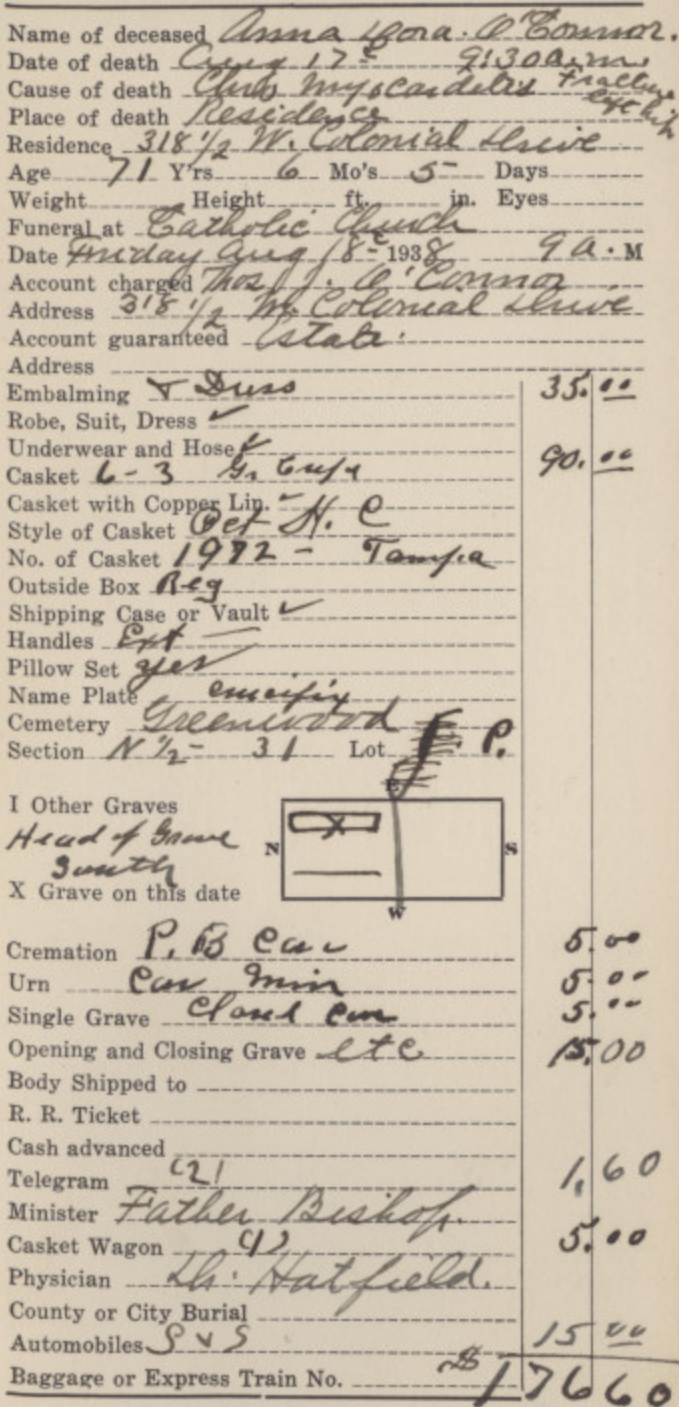 Name of deceased Anna Cora. O'Connor.
Date of death Aug 17th 9:30 a.m.
Cause of death Chro Myocarditis + Fracture
left hip
Place of death Residence
Residence 318 1/2 W. Colonial Drive
Age 71 Y'rs 6 Mo's 5 Days
Weight Height ft. in. Eyes
Funeral at Catholic Church
Date Friday Aug 18th 1938 9 A. M
Account charged Thos J. O'Connor
Address 318 1/2 W. Colonial Drive
Account guaranteed Estate.
Address
Embalming & Dress 35.00
Robe, Suit, Dress ✓
Underwear and Hose ✓
Casket 6-3 G. Crepe 90.00
Casket with Copper Lin. ✓
Style of Casket Oct H. C
No. of Casket 1972 - Tampa
Outside Box Reg
Shipping Case or Vault ✓
Handles Ext
Pillow Set yes
Name Plate crucifix
Cemetery Greenwood
Section N 1/2 - 31 Lot P.
E
I Other Graves
Head of Grave
South
N X S
X Grave on this date
W
Cremation P. B Car 5.00
Urn Car Min 5.00
Single Grave Closed Car 5.00
Opening and Closing Grave etc 15.00
Body Shipped to
R. R. Ticket
Cash advanced
Telegram (2) 1.60
Minister Father Bishop.
Casket Wagon 5.00
Physician Dr. Hatfield.
County or City Burial
Automobiles S & S 15 00
Baggage or Express Train No. $176 60